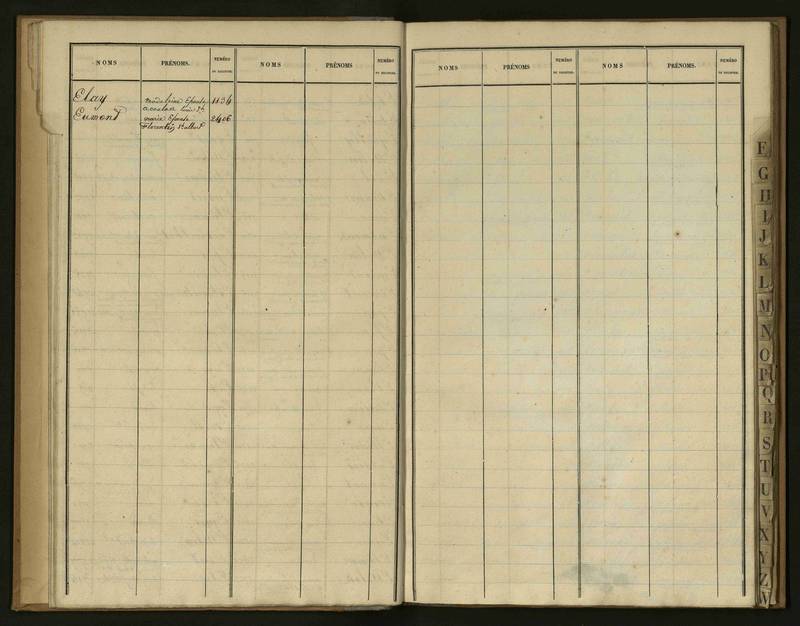 NOMS PRÉNOMS. NUMÉRO DU REGISTRE. NOMS PRÉNOMS NUMÉRO DU REGISTRE.
Elay Madeleine Epouse 1134
Eumont Marie Epouse 2406
NOMS PRÉNOMS NUMÉRO DU REGISTRE. NOMS PRÉNOMS. NUMÉRO DU REGISTRE.
F
G
H
I
J
K
L
M
N
O
P
Q
R
S
T
U
V
X
Y
Z
W